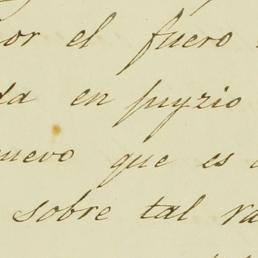 or el fuero
da en juyzio
nuevo que es
sobre tal ra